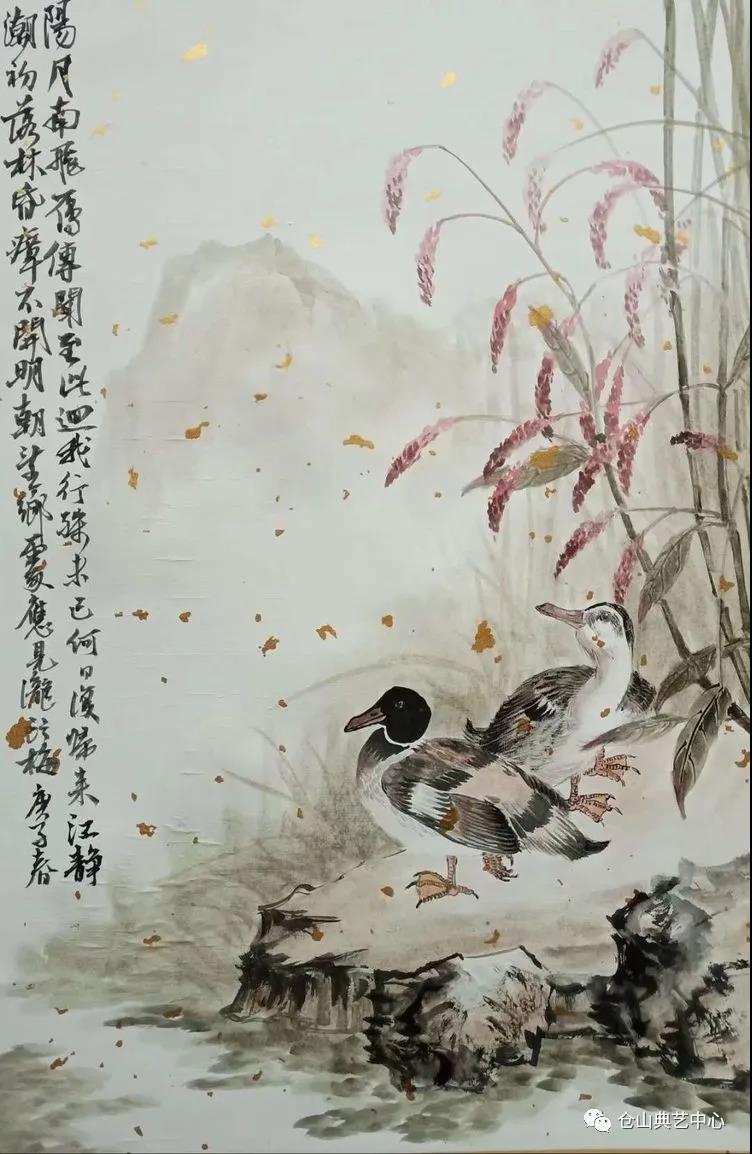 陽月南飛鴈傳聞至此迴我行殊未已何日復歸來江静
潮初落林昏瘴不開明朝望鄉處應見隴頭梅 庚子春
仓山典艺中心